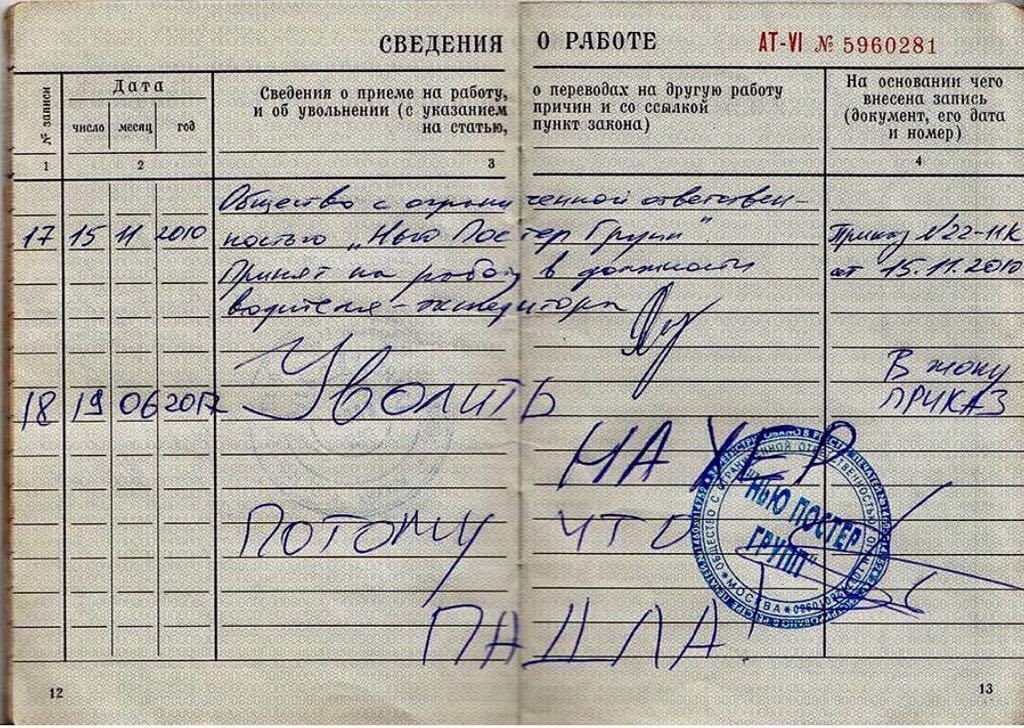 СВЕДЕНИЯ О РАБОТЕ АТ-VI № 5960281
№ записи
Дата
число месяц год
Сведения о приеме на работу, о переводах на другую работу
и об увольнении (с указанием причин и со ссылкой
на статью, пункт закона)
На основании чего
внесена запись
(документ, его дата
и номер)
1 2 3 4
Общество с ограниченной ответствен-
17 15 11 2010 ностью „Нью Постер Групп". Приказ №22-11К
Принят на работу в должности от 15.11.2010
водителя-экспедитора
В жопу
18 19 06 2017 Уволить ПРИКАЗ
НАХЕР
ПОТОМУ ЧТО
ПАДЛА!
"НЬЮ ПОСТЕР
ГРУПП"
ОБЩЕСТВО С ОГРАНИЧЕННОЙ ОТВЕТСТВЕННОСТЬЮ
МОСКВА
12 13